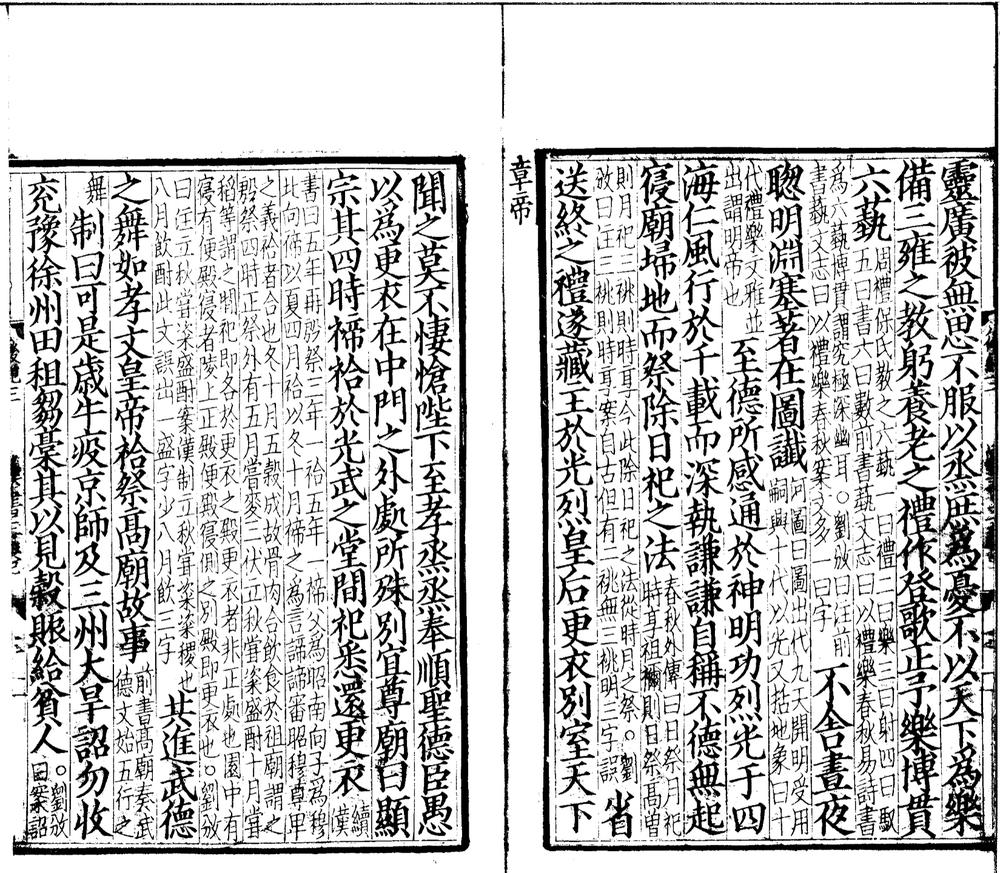 靈廣被無思不服以烝庶為憂不以天下為樂
備三雍之教躬養老之禮作登歌正予樂博貫
六藝
周禮保氏教之六藝一曰禮二曰樂三曰射四曰馭
五曰書六曰數前書藝文志曰以禮樂春秋易詩書
為六藝博貫謂究極深幽耳。劉攽曰注前
書藝文志曰以禮樂春秋案文多一曰字
不舍晝夜
聰明淵塞著在圖讖
河圖曰圖出代九天開明受用
嗣興十代以光又括地象曰十
代禮樂文雅並
出謂明帝也
至德所感通於神明功烈光于四
海仁風行於千載而深執謙謙自稱不德無起
寢廟埽地而祭除日祀之法
春秋外傳曰日祭月祀
時享祖禰則日祭高曾
則月祀三祧則時享今此除日祀之法從時月之祭。劉
攽曰注三祧則時享案自古但有二祧無三祧明三字誤
省
送終之禮遂藏主於光烈皇后更衣別室天下
章帝
聞之莫不悽愴陛下至孝烝烝奉順聖德臣愚
以為更衣在中門之外處所殊別宜尊廟曰顯
宗其四時禘祫於光武之堂間祀悉還更衣
續
漢
書曰五年再殷祭三年一祫五年一禘父為昭南向子為穆
北向禘以夏四月祫以冬十月禘之為言諦諦審昭穆尊卑
之義祫者合也冬十月五穀成故骨肉合飲食於祖廟謂之
殷祭四時正祭外有五月嘗麥三伏立秋嘗粢盛酎十月嘗
稻等謂之閒祀即各於更衣之殿更衣者非正處也園中有
寢有便殿寢者陵上正殿便殿寢側之別殿即更衣也。劉攽
曰注立秋嘗粢盛酎案漢制立秋嘗粢粢稷也
八月飲酎此文誤出一盛字少八月飲三字
共進武德
之舞如孝文皇帝祫祭高廟故事
前書高廟奏武
德文始五行之
舞
制曰可是歲牛疫京師及三州大旱詔勿收
兗豫徐州田租芻稾其以見穀賑給貧人
。劉攽
曰案詔